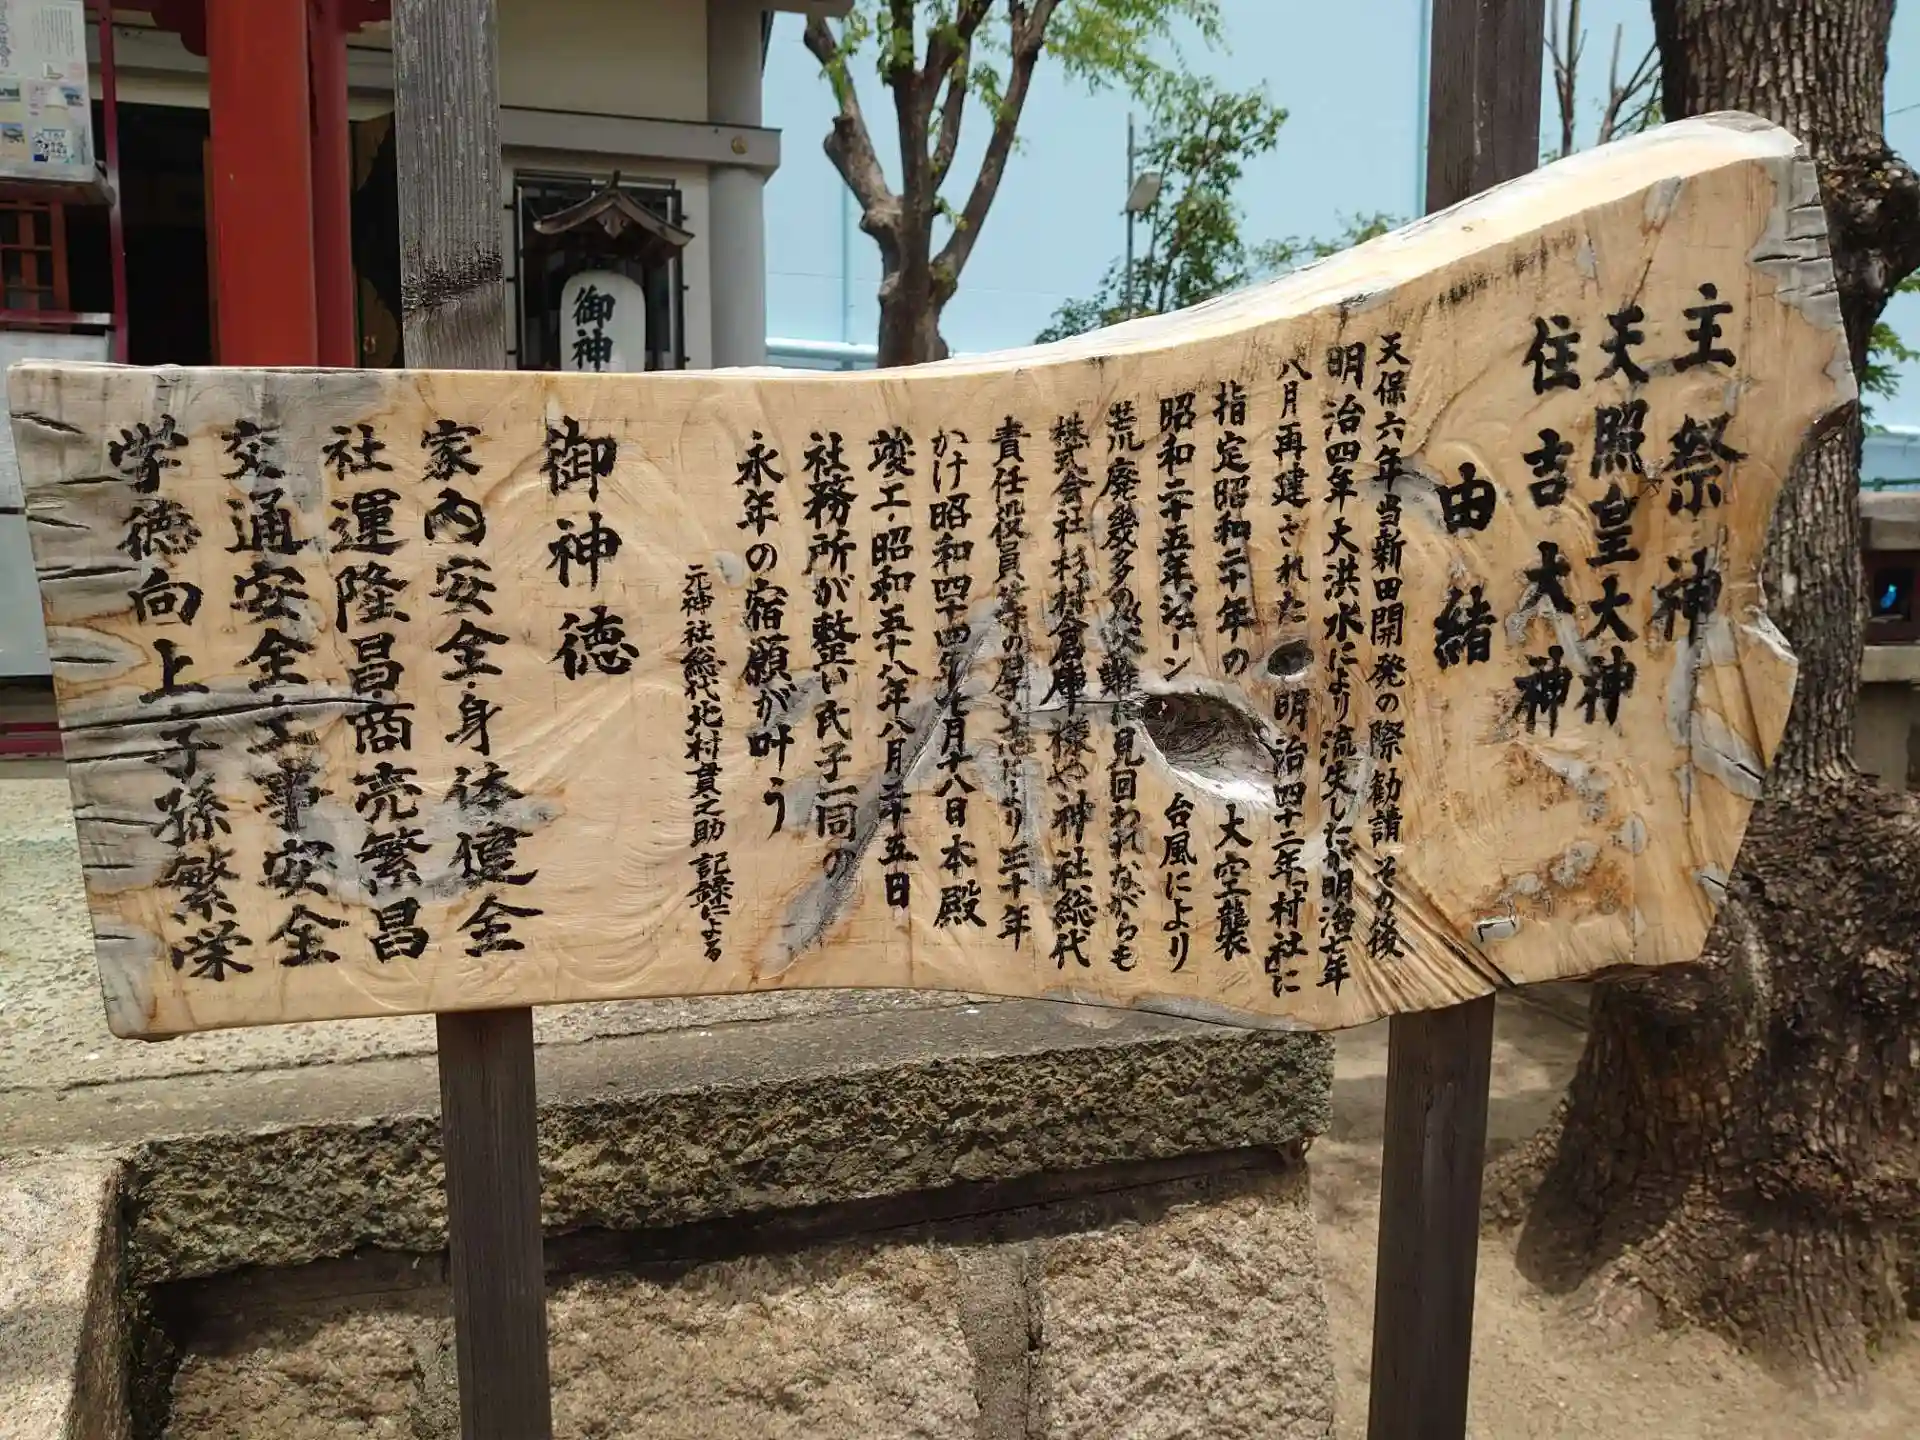 主祭神
天照皇大神
住吉大神
由緒
天保六年当新田開発の際勧請その後
明治四年大洪水により流失したが明治七年
八月再建された 明治四十二年「村社」に
指定昭和二十年の 大空襲
昭和二十五年ジェーン 台風により
荒廃幾多の災難に見回われながらも
株式会社杉村倉庫様や神社総代
責任役員等の厚志により三十年
かけ昭和四十四年七月十八日本殿
竣工・昭和五十八年八月二十五日
社務所が整い氏子一同の
永年の宿願が叶う
元神社総代北村貫之助 記録による
御神徳
家内安全身体健全
社運隆昌商売繁昌
交通安全工事安全
学徳向上子孫繁栄
御神